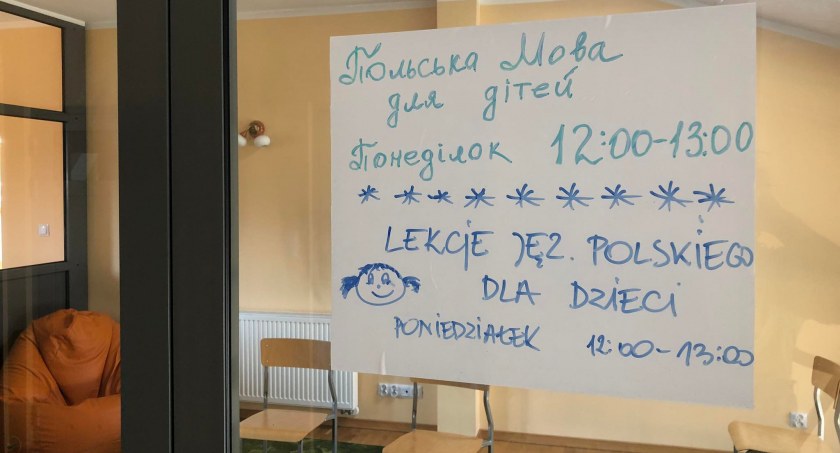 Польська Мова
для дітей
Понеділок 12:00-13:00
* * * * * * * * *
LEKCJE JĘZ. POLSKIEGO
DLA DZIECI
PONIEDZIAŁEK 12:00-13:00